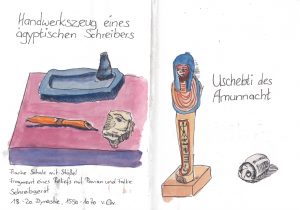 Handwerkszeug eines
ägyptischen Schreibers
Flache Schale mit Stößel
Fragment eines Reliefs mit Pavian und
Schreibgerät
18.-20. Dynastie, 1550-1070 v. Chr.
Uschebti des
Amunnacht